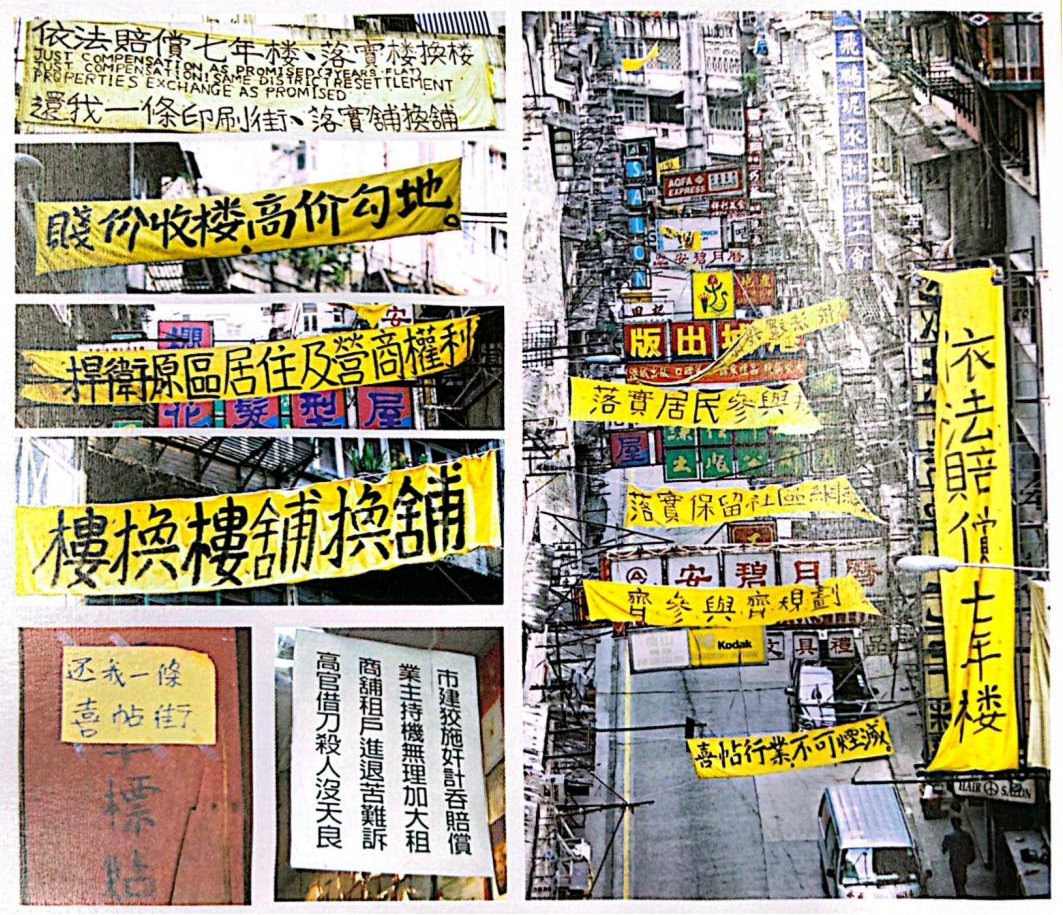 依法賠償七年楼、落實楼換楼
JUST COMPENSATION AS PROMISED (7 YEARS FLAT)
COMPENSATION! SAME DISTRICT RESETTLEMENT
PROPERTIES EXCHANGE AS PROMISED
還我一條印刷街、落實舖換舖
賤价收楼,高价勾地。
捍衛原區居住及營商權利
髮型屋
樓換樓舖換舖
还我一條
喜帖街?
標
貼
市建狡施奸計吞賠償
業主持機無理加大租
商舖租戶進退苦難訴
高官借刀殺人沒天良
SALON
AGFA
EXPRESS
安碧月曆
版出
落實居民參與
屋
落實保留社區網
安碧月曆
齊參與齊規劃
Kodak
具禮品
喜帖行業,不可煙滅。
依法賠償七年楼
HAIR SALON